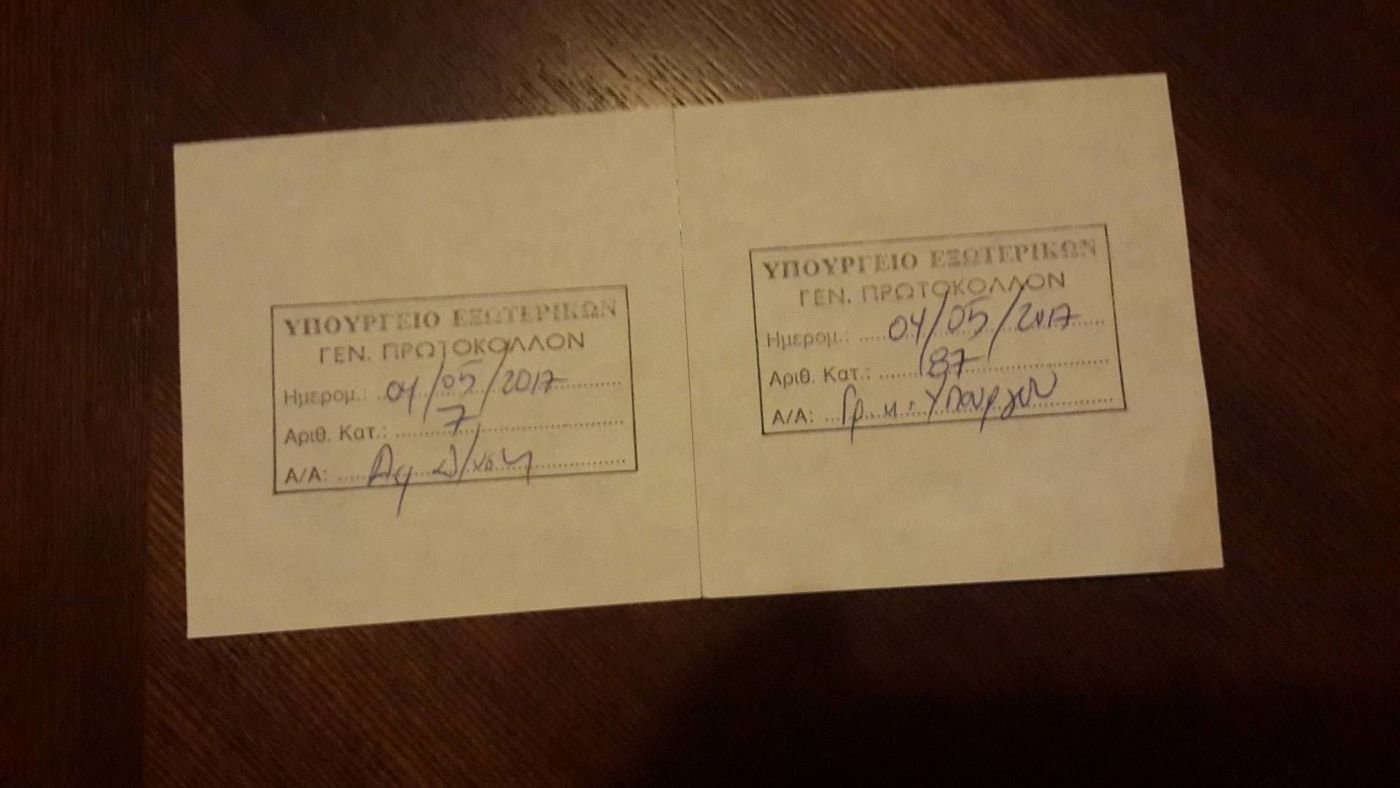 ΥΠΟΥΡΓΕΙΟ ΕΞΩΤΕΡΙΚΩΝ
ΓΕΝ. ΠΡΩΤΟΚΟΛΛΟΝ
Ημερομ.: 04/05/2017
Αριθ. Κατ.: 7
Α/Α:
ΥΠΟΥΡΓΕΙΟ ΕΞΩΤΕΡΙΚΩΝ
ΓΕΝ. ΠΡΩΤΟΚΟΛΛΟΝ
Ημερομ.: 04/05/2017
Αριθ. Κατ.: 87
Α/Α: Γρ. κ. Υπουργού